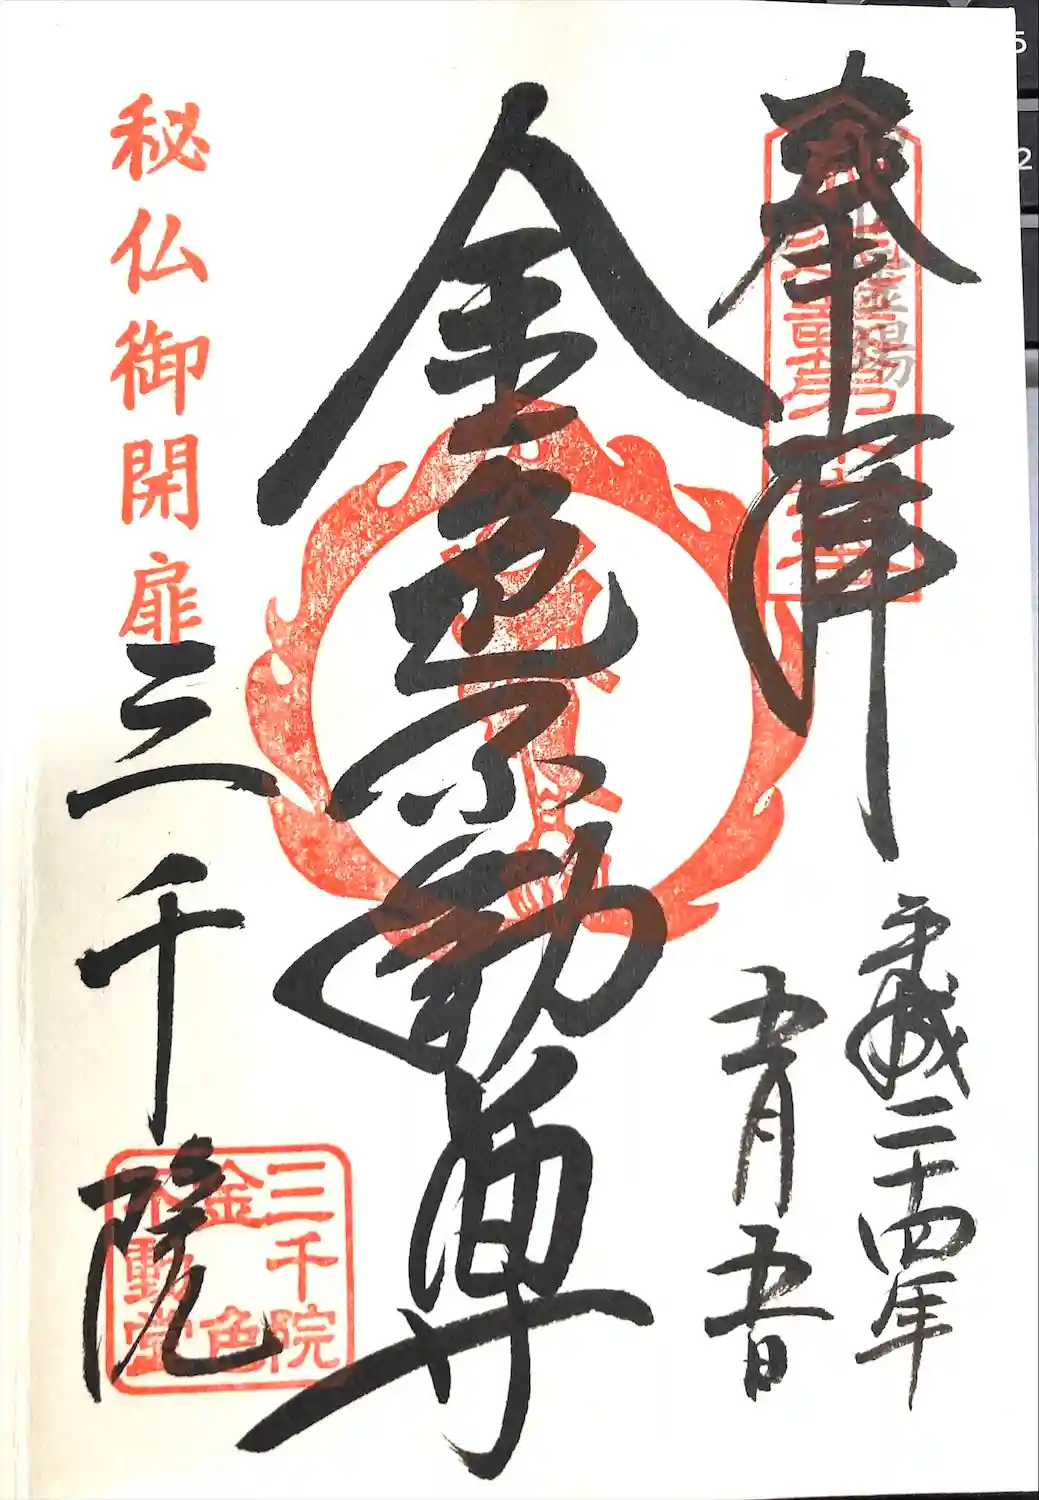 奉拝
平成二十四年
五月五日
金色不動尊
秘仏御開扉
三千院
三千院
金色
不動堂
5
2